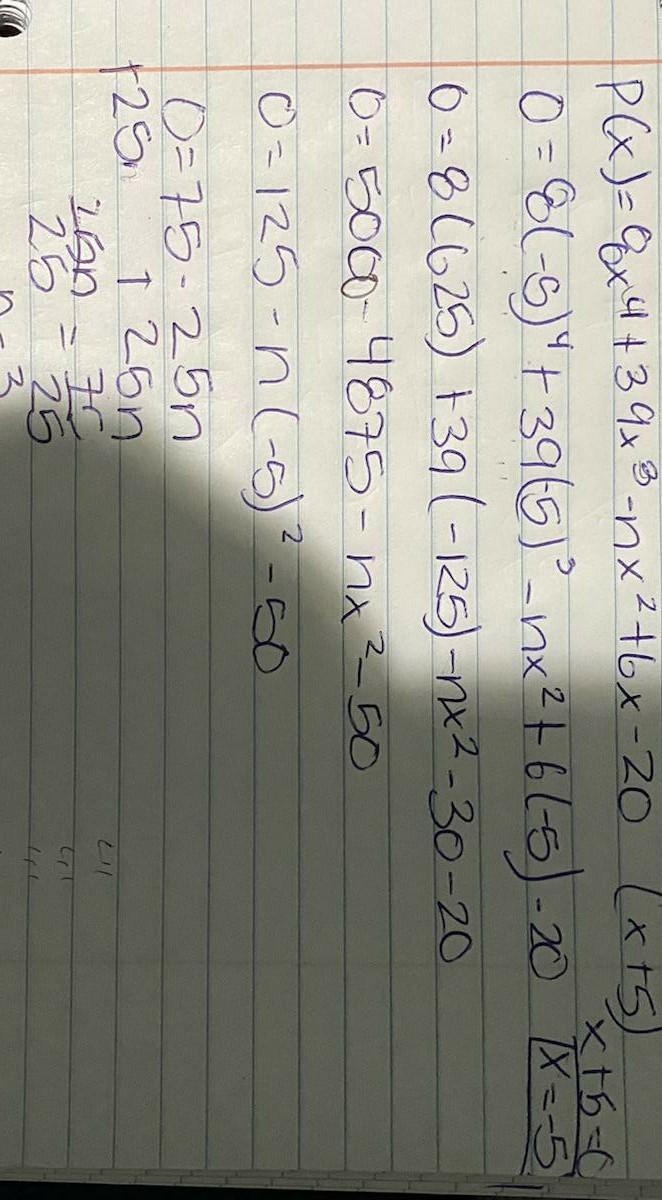 P(x) = 8x⁴ + 39x³ - nx² + 6x - 20 (x+5)
x+5=0
0 = 8(-5)⁴ + 39(-5)³ - nx² + 6(-5) - 20 x = -5
0 = 8(625) + 39(-125) - nx² - 30 - 20
0 = 5000 - 4875 - nx² - 50
0 = 125 - n(-5)² - 50
0 = 75 - 25n
+25n + 25n
25n/25 = 75/25
n = 3